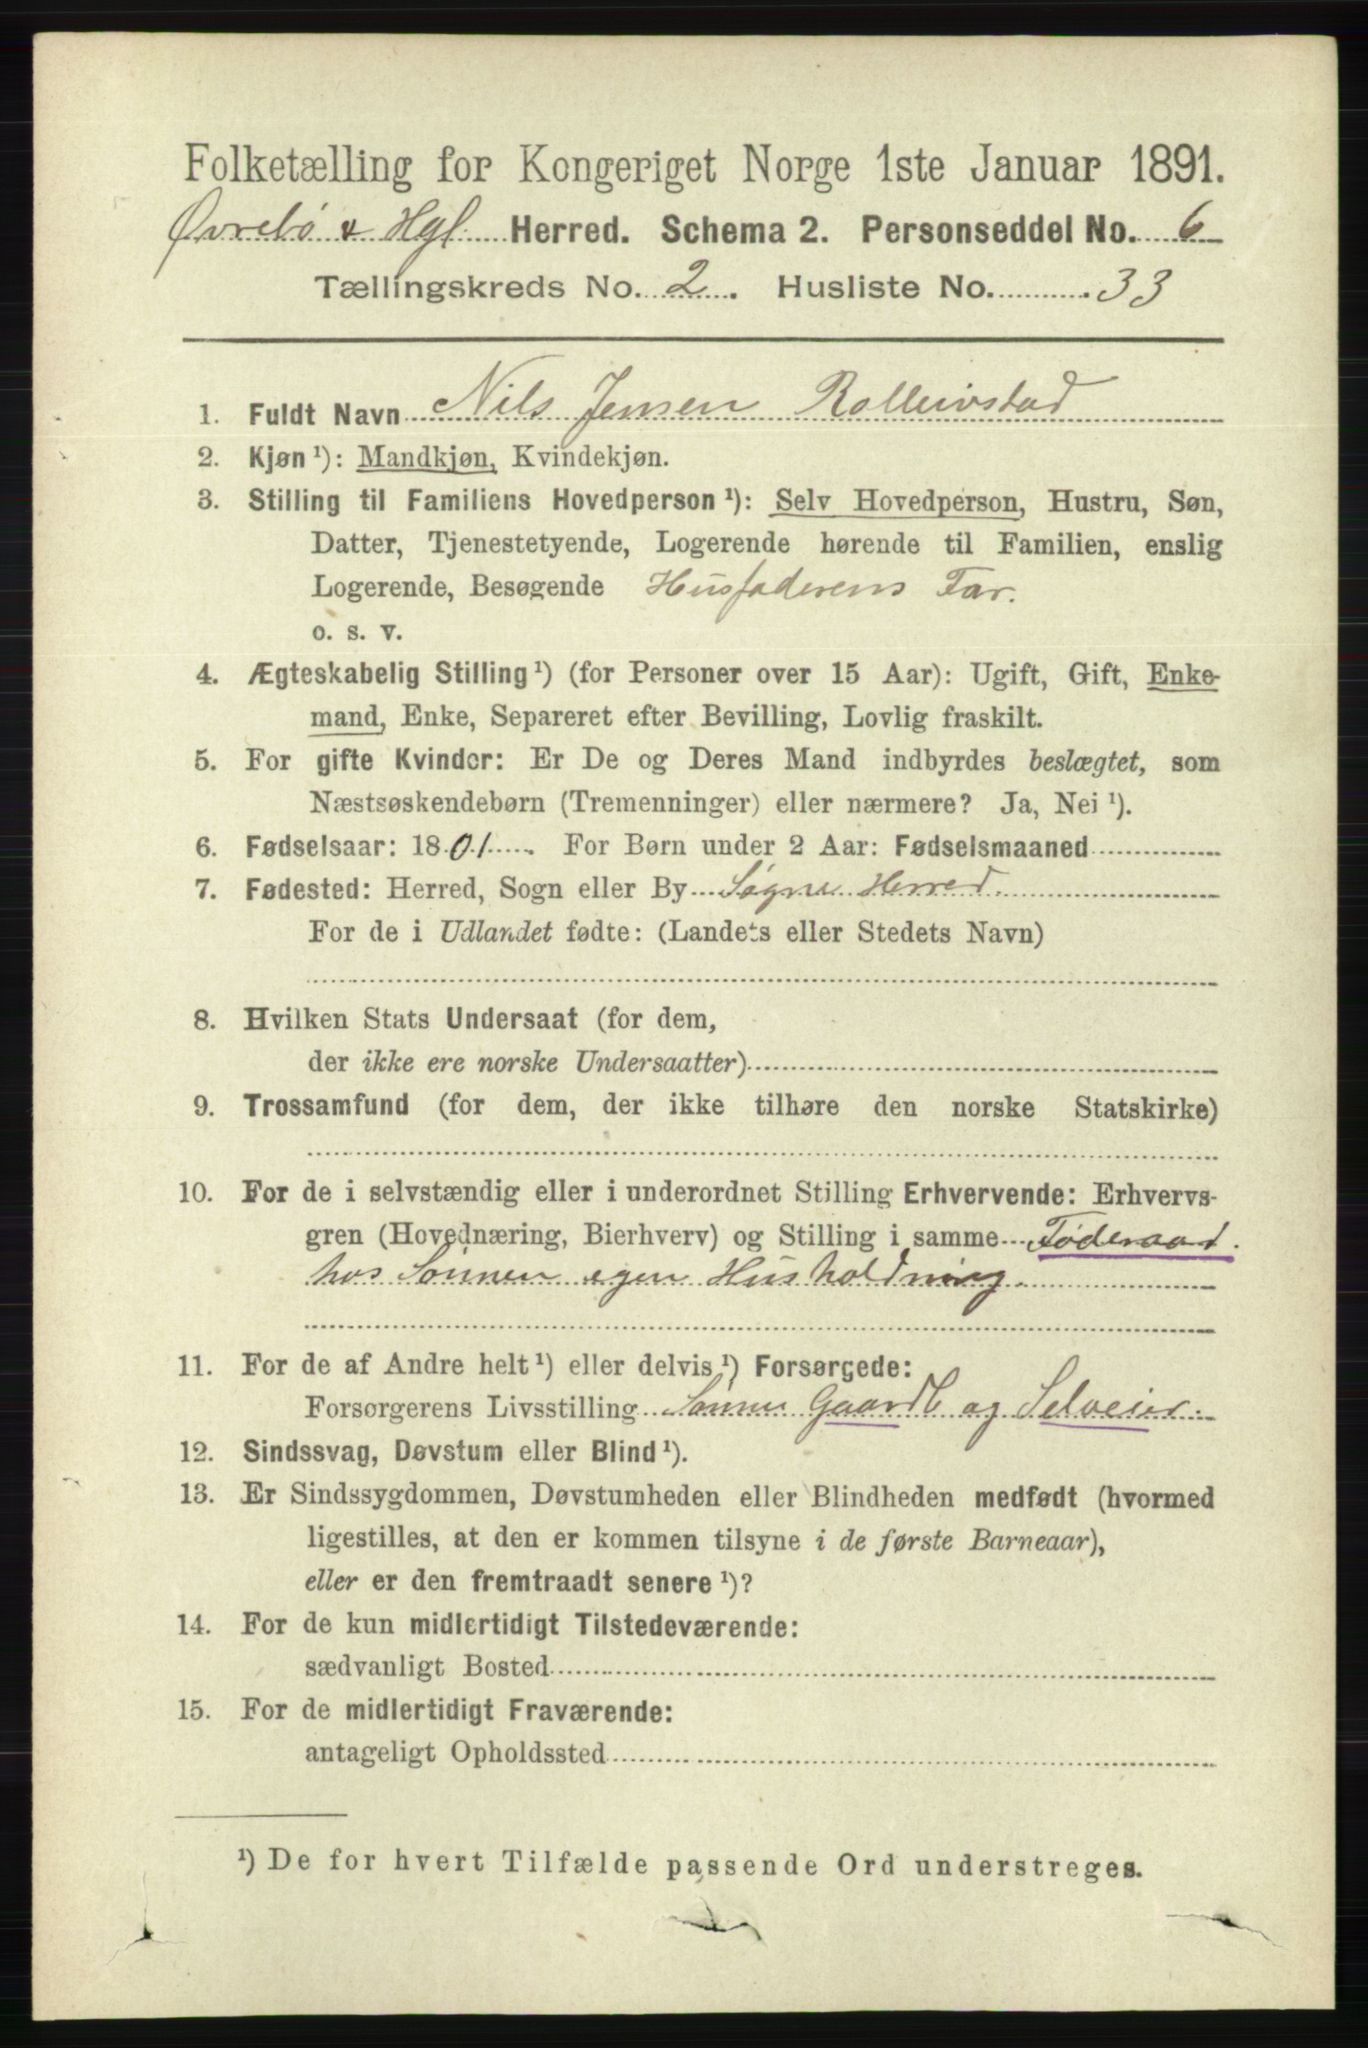 Folketælling for Kongeriget Norge 1ste Januar 1891.
Øvrebø & Hgl. Herred. Schema 2. Personseddel No. 6
Tællingskreds No. 2. Husliste No. 33
1. Fuldt Navn Nils Jensen Rolleivstad
2. Kjøn ¹): Mandkjøn, Kvindekjøn.
3. Stilling til Familiens Hovedperson ¹): Selv Hovedperson, Hustru, Søn,
Datter, Tjenestetyende, Logerende hørende til Familien, enslig
Logerende, Besøgende Husfaderens Far.
o. s. v.
4. Ægteskabelig Stilling ¹) (for Personer over 15 Aar): Ugift, Gift, Enke-
mand, Enke, Separeret efter Bevilling, Lovlig fraskilt.
5. For gifte Kvinder: Er De og Deres Mand indbyrdes beslægtet, som
Næstsøskendebørn (Tremenninger) eller nærmere? Ja, Nei ¹).
6. Fødselsaar: 1801. For Børn under 2 Aar: Fødselsmaaned
7. Fødested: Herred, Sogn eller By Søgne Herred.
For de i Udlandet fødte: (Landets eller Stedets Navn)
8. Hvilken Stats Undersaat (for dem,
der ikke ere norske Undersaatter)
9. Trossamfund (for dem, der ikke tilhøre den norske Statskirke)
10. For de i selvstændig eller i underordnet Stilling Erhvervende: Erhvervs-
gren (Hovednæring, Bierhverv) og Stilling i samme Føderaad.
hos Sønnen egen Husholdning.
11. For de af Andre helt ¹) eller delvis ¹) Forsørgede:
Forsørgerens Livsstilling Sønnen Gaardb og Selveier.
12. Sindssvag, Døvstum eller Blind ¹).
13. Er Sindssygdommen, Døvstumheden eller Blindheden medfødt (hvormed
ligestilles, at den er kommen tilsyne i de første Barneaar),
eller er den fremtraadt senere ¹)?
14. For de kun midlertidigt Tilstedeværende:
sædvanligt Bosted
15. For de midlertidigt Fraværende:
antageligt Opholdssted
¹) De for hvert Tilfælde passende Ord understreges.